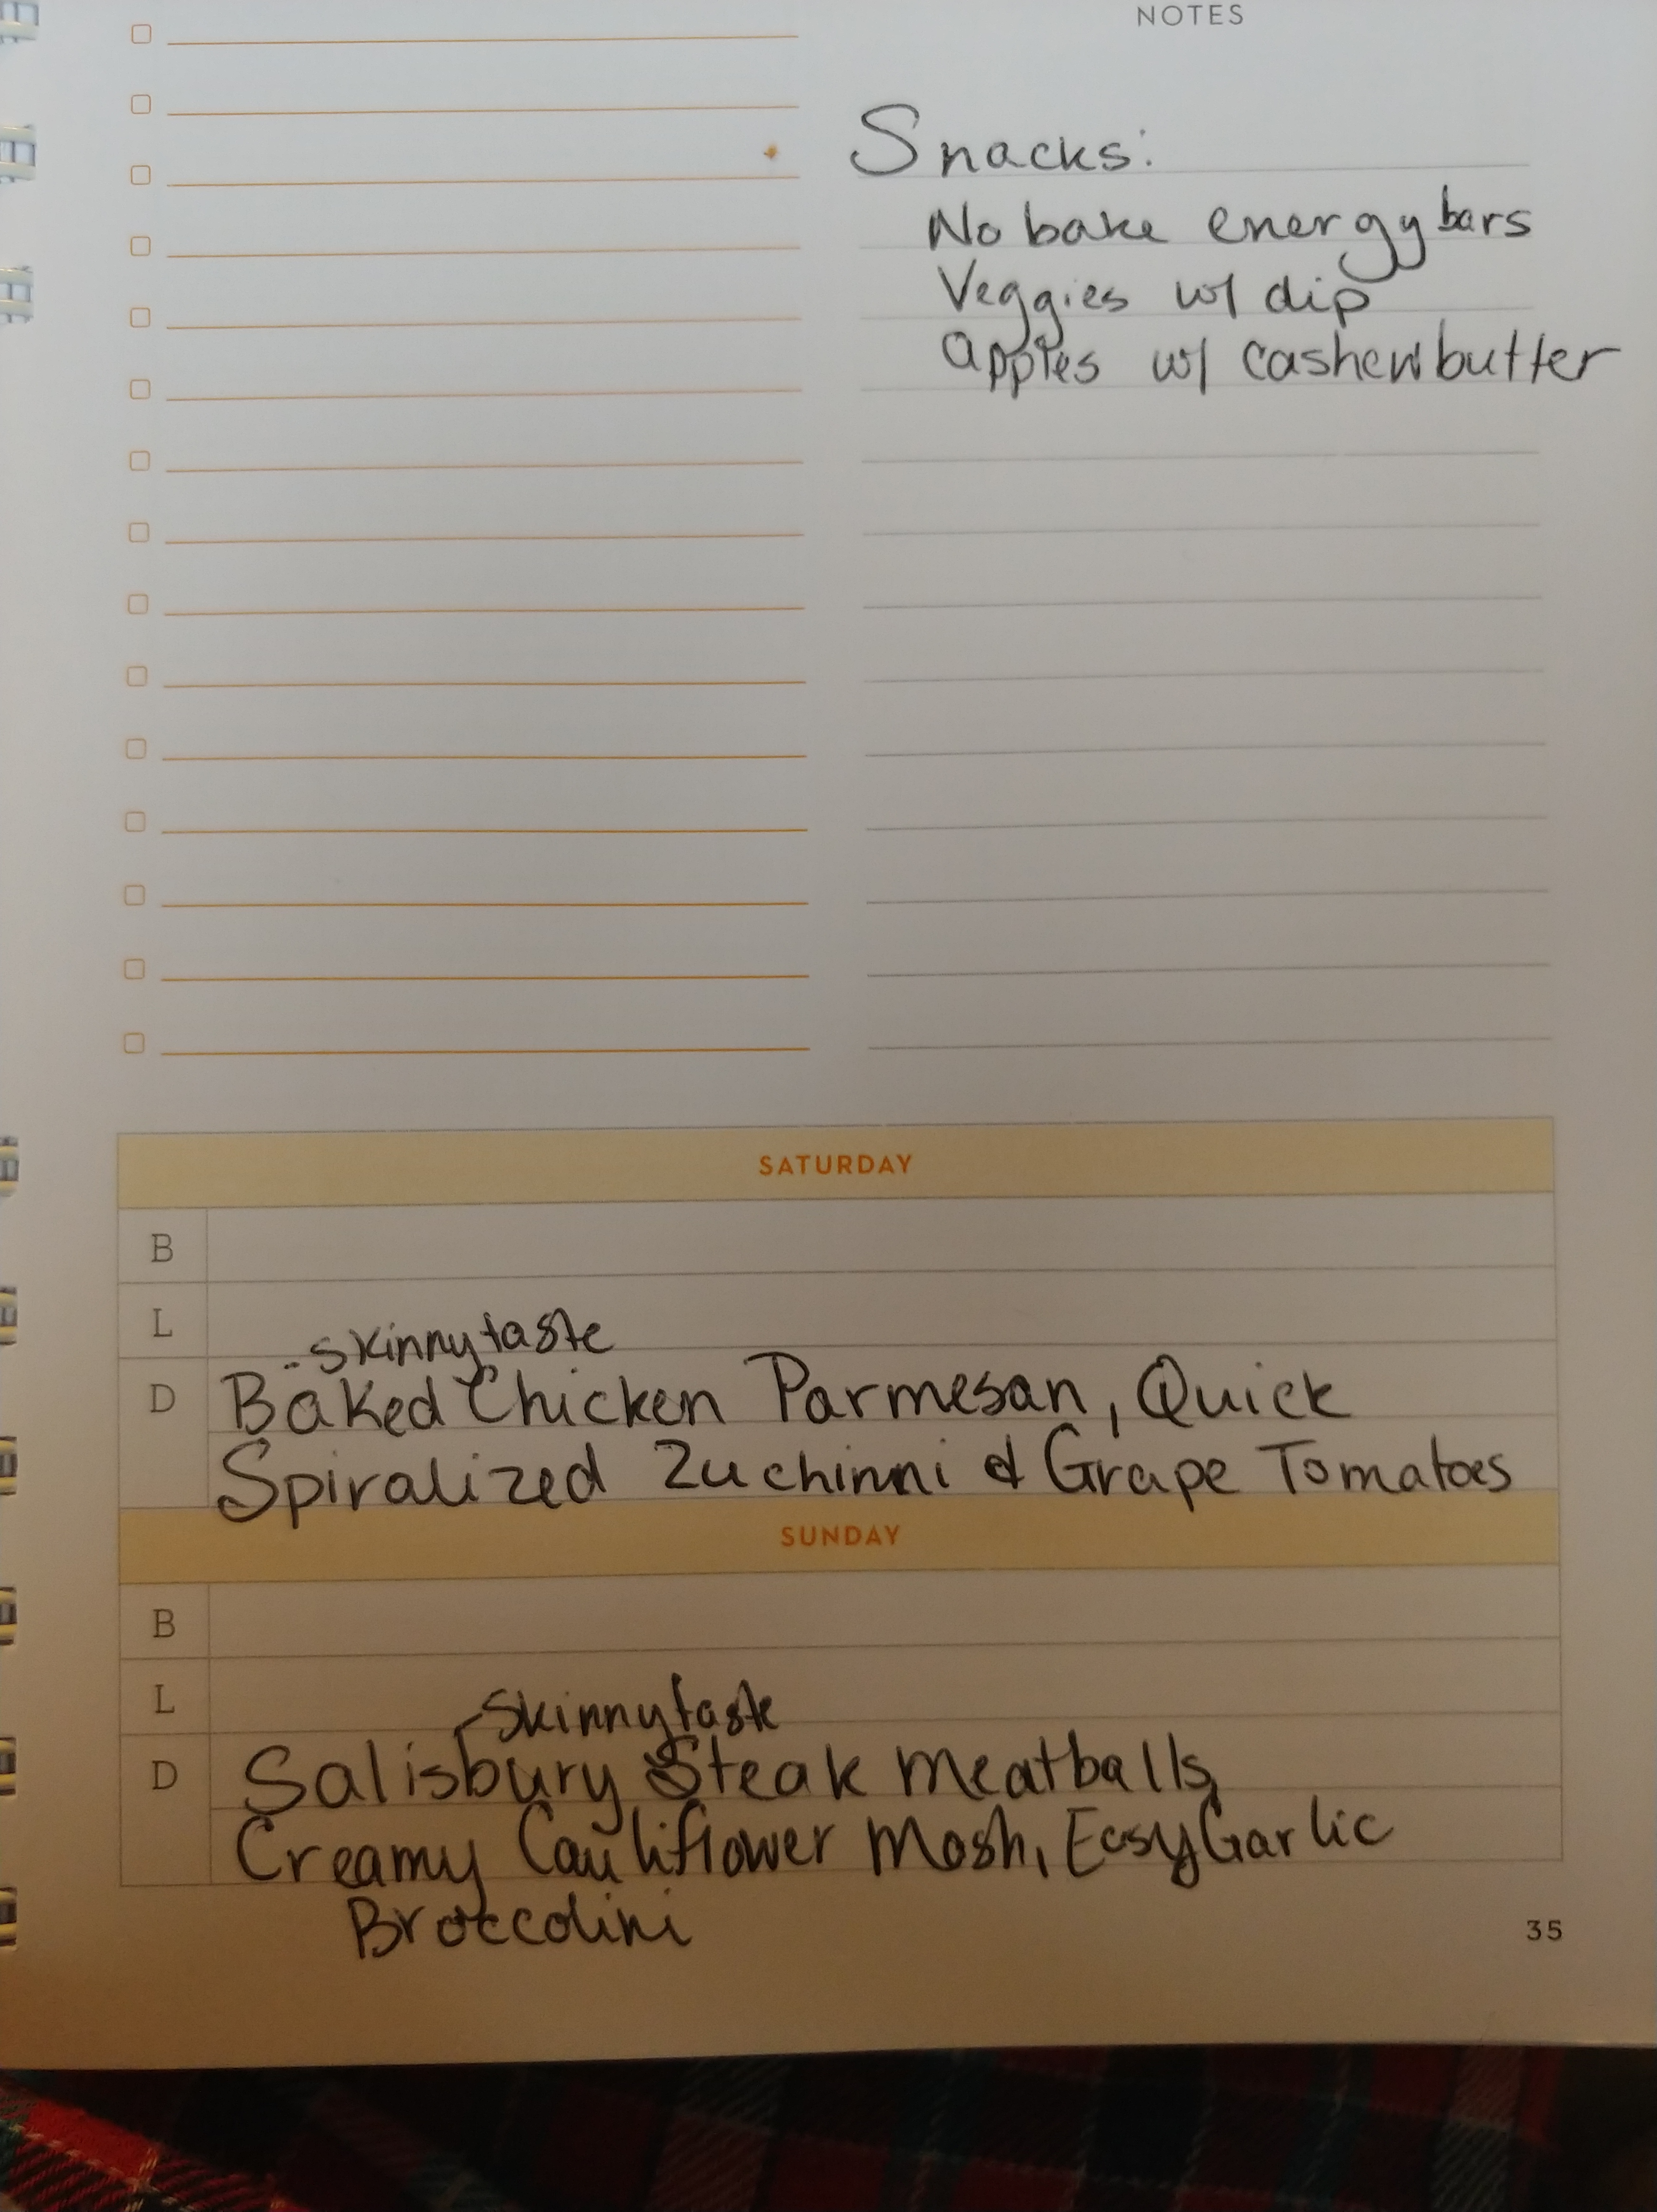 NOTES
Snacks:
No bake energy bars
Veggies w/ dip
apples w/ cashew butter
SATURDAY
B
L
- skinnytaste
D Baked Chicken Parmesan, Quick
Spiralized Zuchinni & Grape Tomatoes
SUNDAY
B
L
- Skinnytaste
D Salisbury Steak Meatballs,
Creamy Cauliflower Mash, Easy Garlic
Broccolini
35